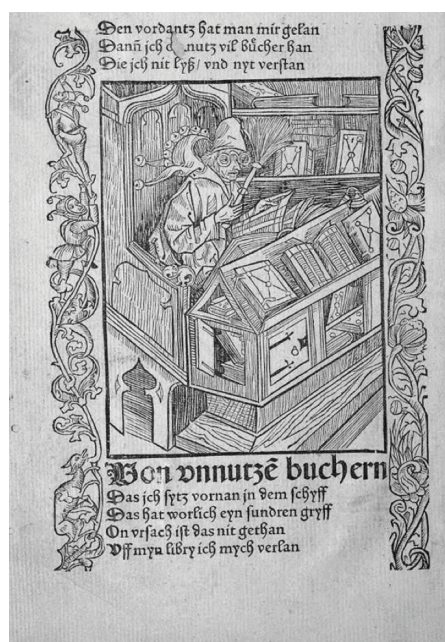 Den vordantz hat man mir gelan
Dann̄ ich nutz vil bůcher han
Die ich nit lyß / vnd nyt verstan
Von vnnutzē buchern
Das ich sytz vornan in dem schyff
Das hat worlich eyn sundren gryff
On vrsach ist das nit gethan
Vff myn libry ich mych verlan